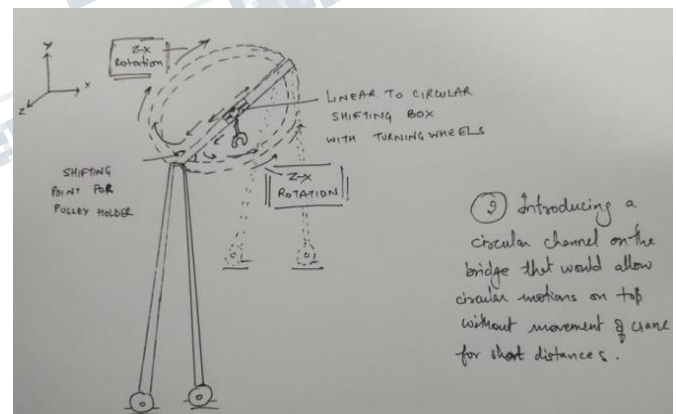 Y
X
Z
Z-X
ROTATION
LINEAR TO CIRCULAR
SHIFTING BOX
WITH TURNING WHEELS
SHIFTING
POINT FOR
PULLEY HOLDER
Z-X
ROTATION
Introducing a
circular channel on the
bridge that would allow
circular motions on top
without movement of crane
for short distances.